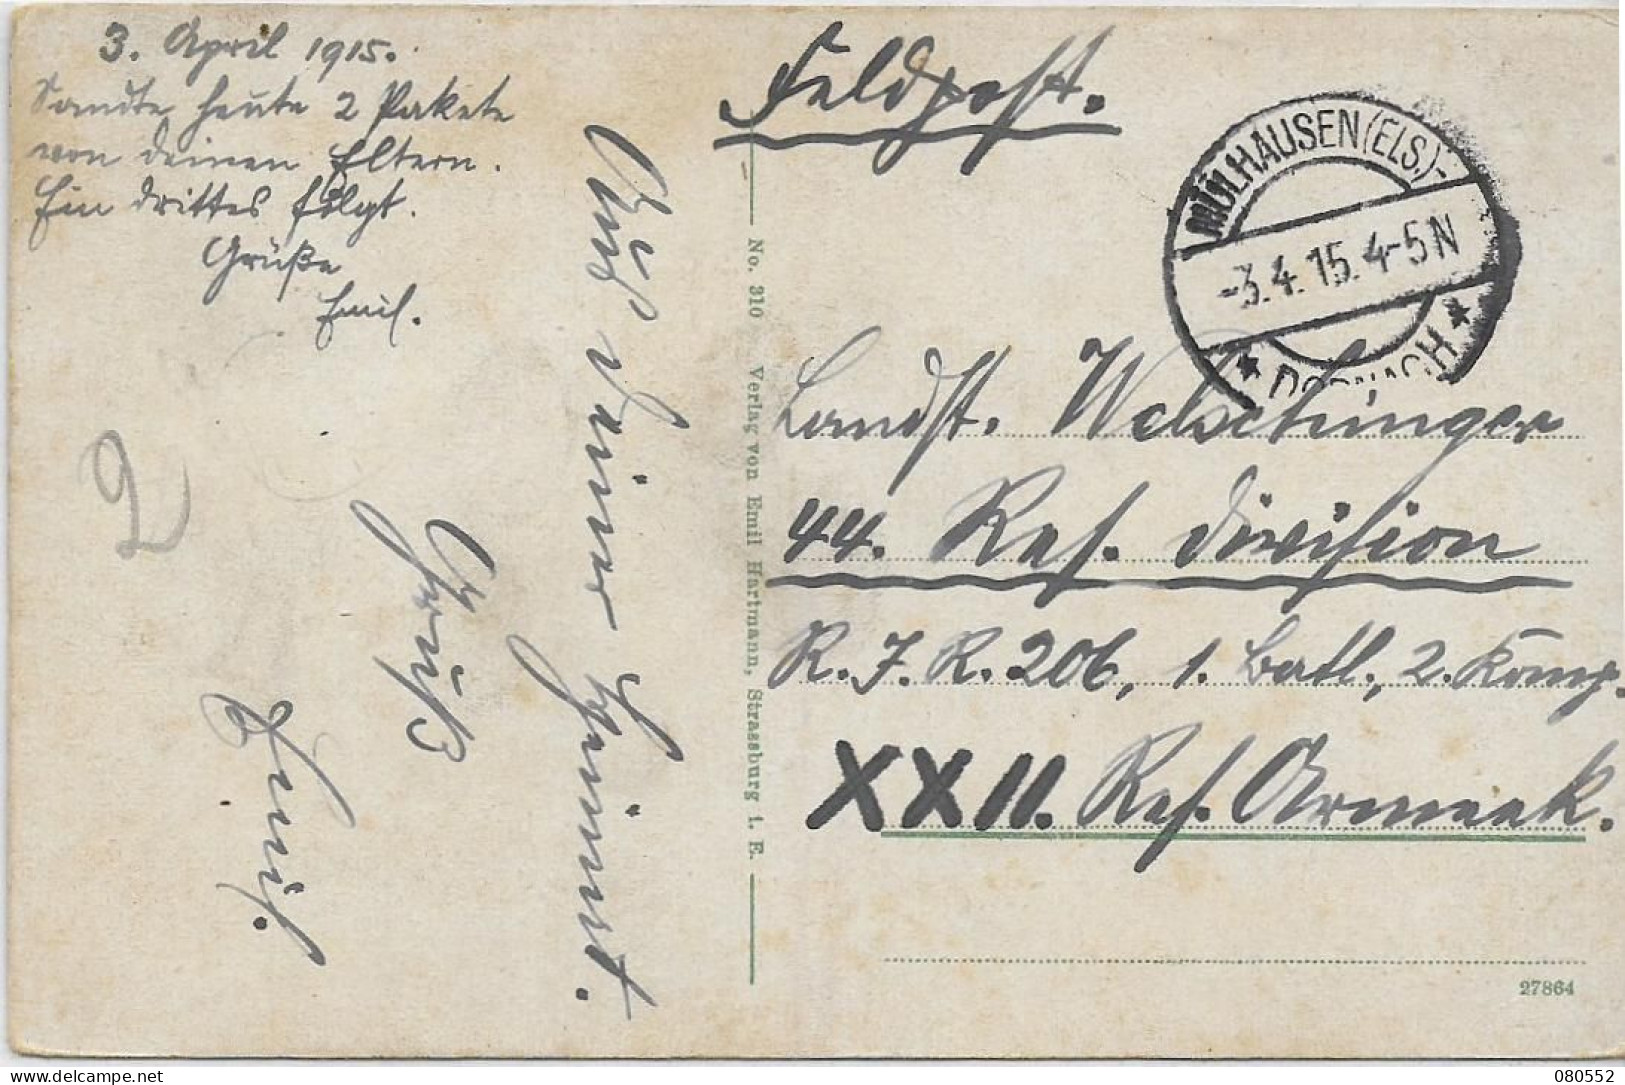 3. April 1915.
Sandte heute 2 Pakete
von deinen Eltern.
Ein drittes folgt.
Grüße
Emil.
Aus deiner Heimat.
Gruß
Emil.
2
No. 310 Verlag von Emil Hartmann, Strassburg i. E.
Feldpost.
MÜLHAUSEN (ELS.)-
-3.4.15.4-5N
* DORNACH *
Landst. Welschinger
44. Res. Division
R. J. R. 206, 1. Batl., 2. Komp.
XXII. Res. Armeek.
27864
080552